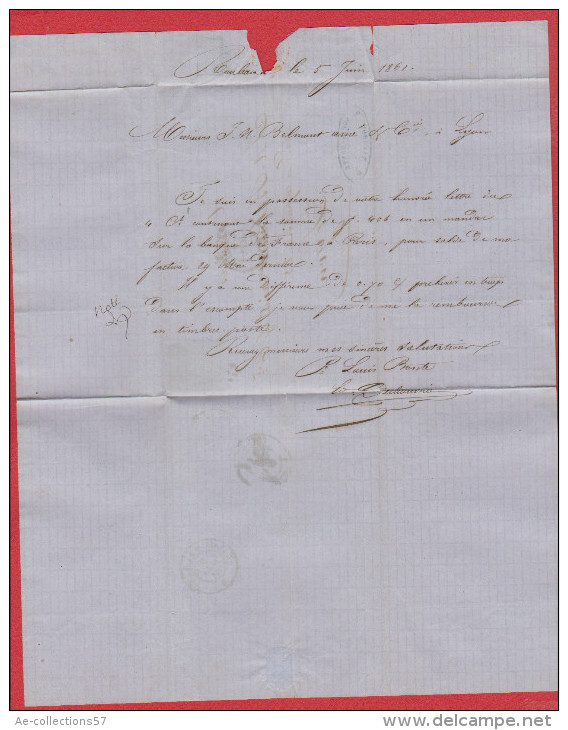 Roubaix le 5 Juin 1861.
Messieurs J. N. Belmont ainé & Cie à Lyon
Je suis en possession de votre honorée lettre du
4 Ct contenant la somme de f. 406 en un mandat
sur la banque de France à Paris, pour solde de ma
facture 29 Mai dernier.
Il y a une différence de 0.70 c/
dans l'escompte, je vous prie de me la rembourser
en timbres poste.
Recevez messieurs mes sincères salutations
P. Louis
Ae-collections57
www.delcampe.net